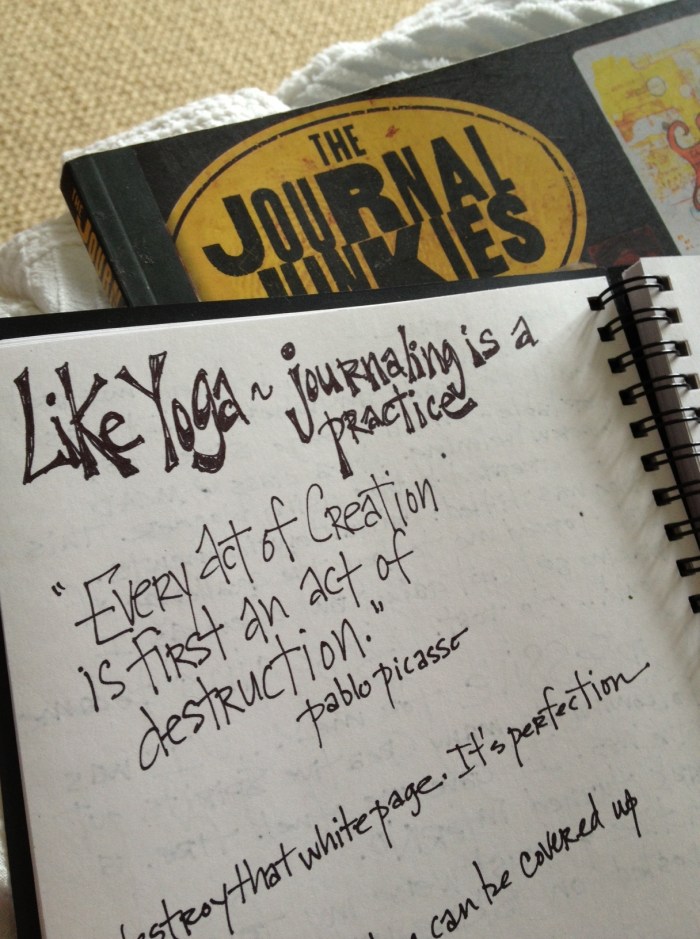 THE
JOURNAL
JUNKIES
Like Yoga ~ journaling is a
practice
"Every Act of Creation
is first an act of
destruction."
pablo picasso
destroy that white page. It's perfection
can be covered up